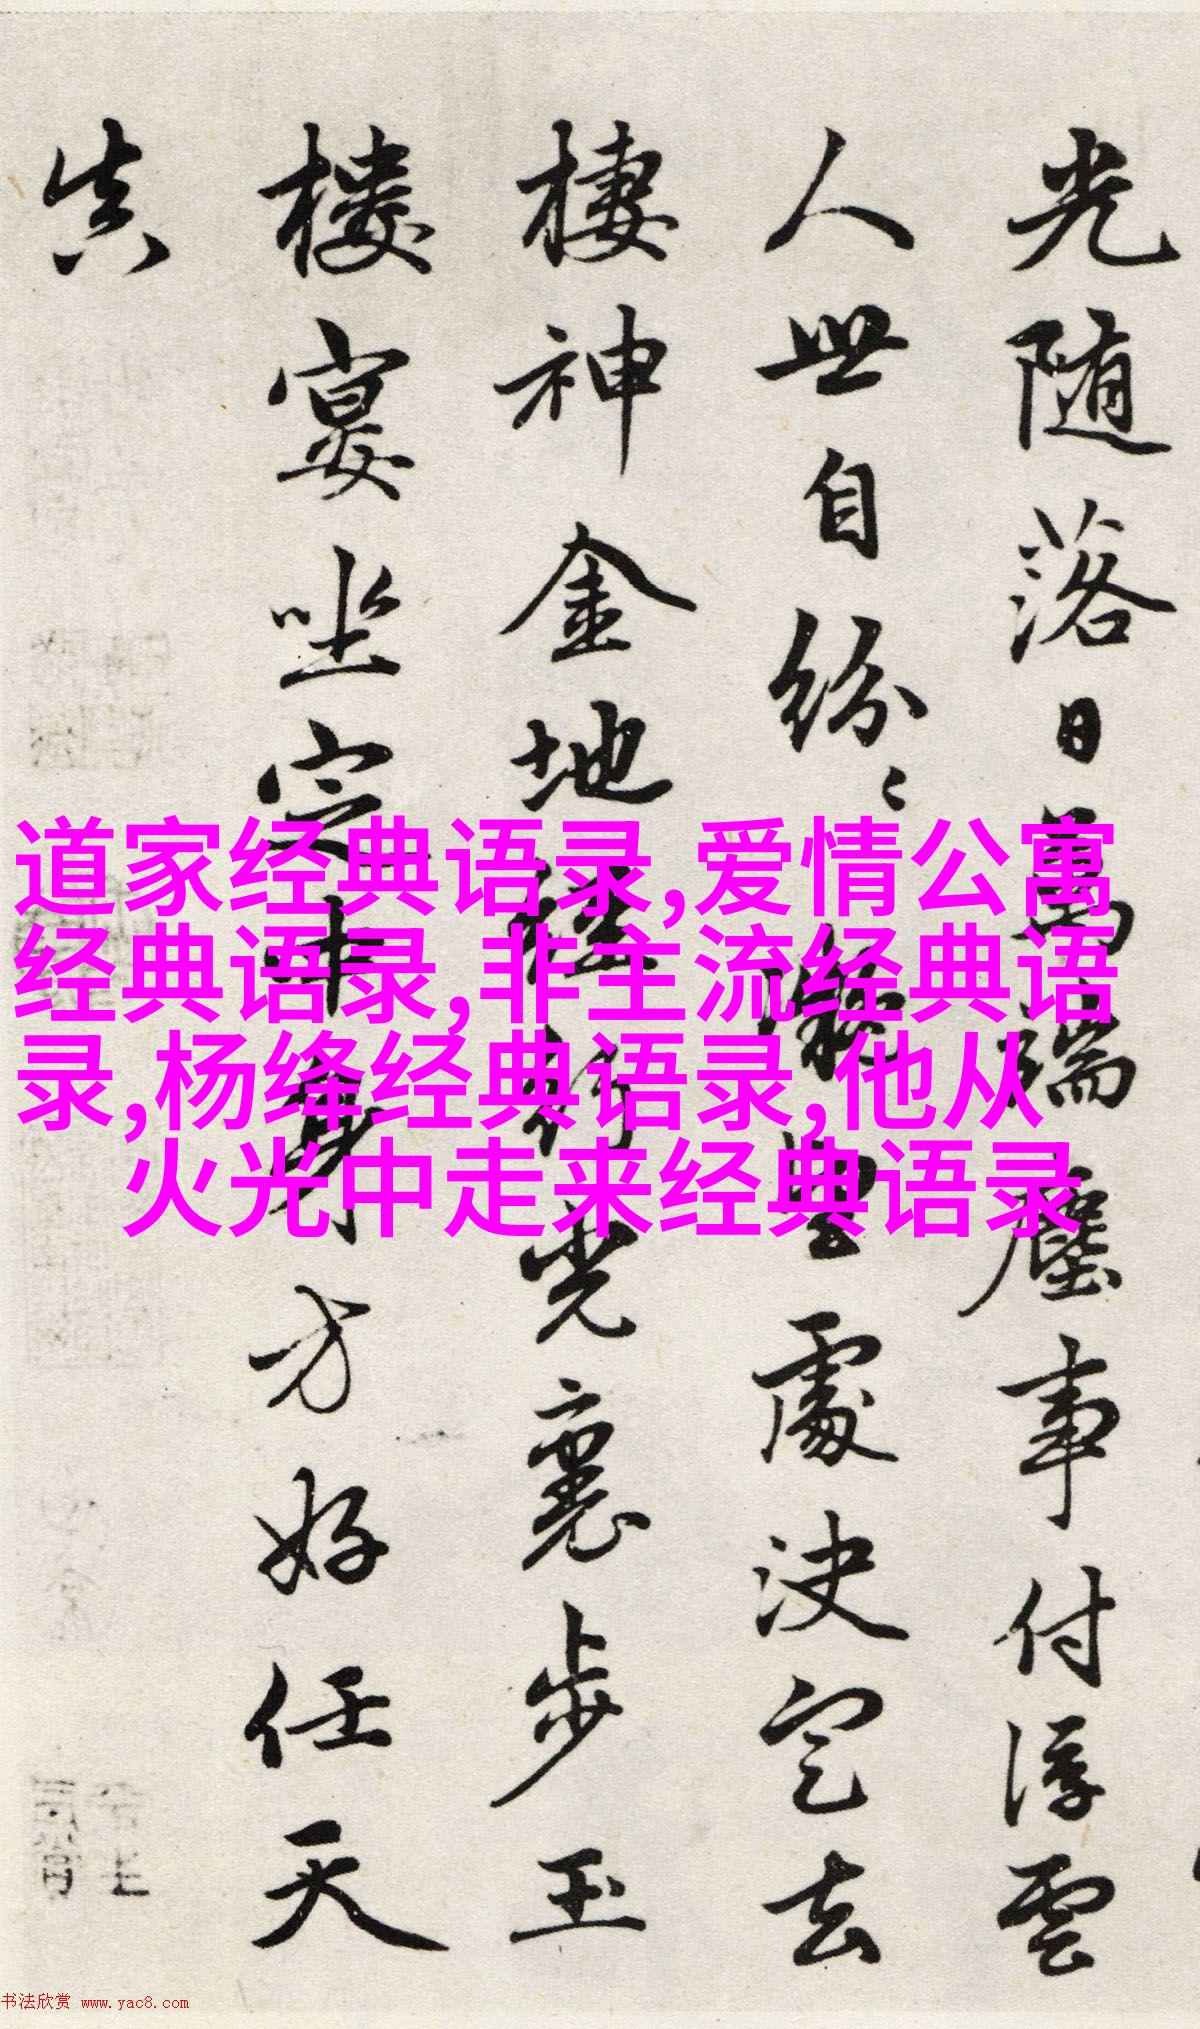 光随落日萬端塵事付浮雲
人世自纷〻凝豊處決定去
棲神金地経行光裏步玉
楼宴坐定中身方好任天
真
道家经典语录,爱情公寓
经典语录,非主流经典语
录,杨绛经典语录,他从
火光中走来经典语录
书法欣赏 www.yac8.com